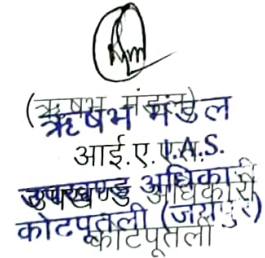 (ऋषभ मंडल)
ऋषभ मंडल
आई.ए.एस.
I.A.S.
उपखण्ड अधिकारी
उपखण्ड अधिकारी
कोटपूतली (जयपुर)
कोटपूतली